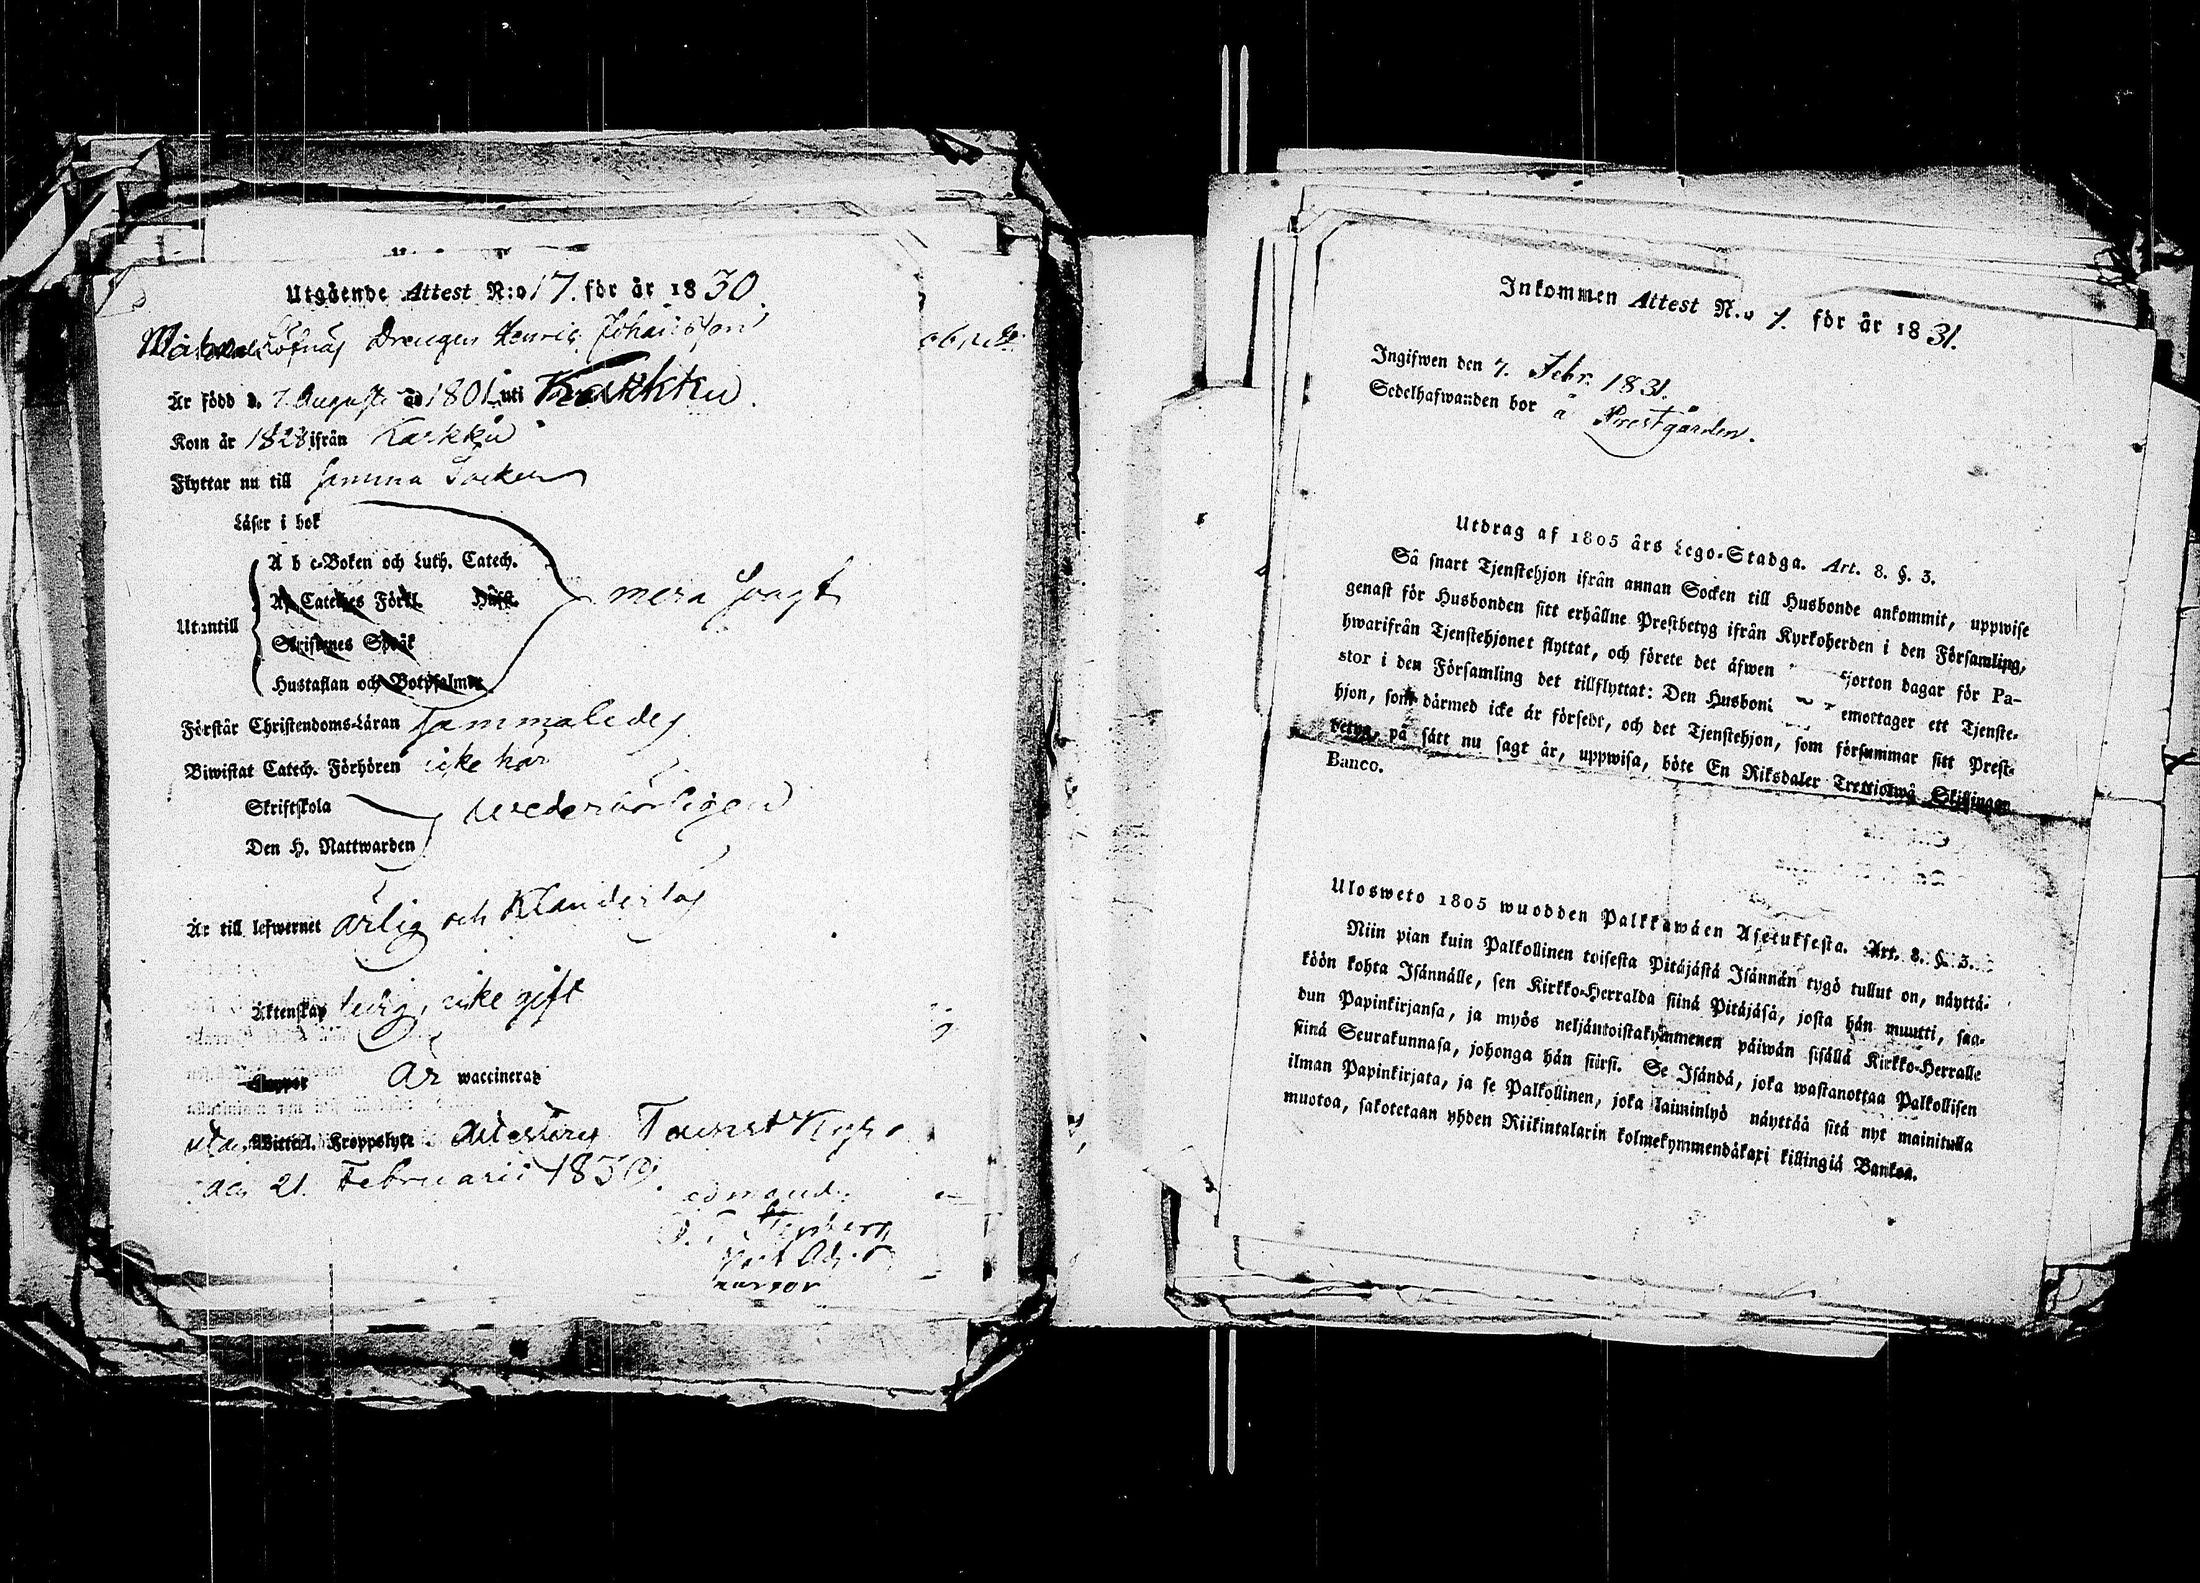 Utgående Attest N:o 17. för år 1830.
Drengen Henric Johansson
Är född d. 7 Augusti åd 1801 uti Karkku.
Kom år 1828 ifrån Karkku
Flyttar nu till samma Socken
Läser i bok
A b c-Boken och Luth. Catech.
Af Cateches Förkl. Husst.
mera svagt
Utantill
Skriftenes Språk
Hustaflan och Botpsalmer
Förstår Christendoms-Läran sammaledes
Biwistat Catech. Förhören icke här
Skriftskola
wederbörligen
Den H. Nattwarden
Är till lefwernet ärlig och Klanderlös
Äktenskap ledig, icke gift
Koppor Är waccinerad
utan Kroppslyte Attesteras Tavastkyrö
den 21. Februarii 1830.
Inkommen Attest N:o 7. för år 1831.
Ingifwen den 7. Febr. 1831.
Sedelhafwanden bor å Prestgården.
Utdrag af 1805 års Lego-Stadga. Art. 8. §. 3.
Så snart Tjenstehjon ifrån annan Socken till Husbonde ankommit, uppwise
genast för Husbonden sitt erhållne Prestbetyg ifrån Kyrkoherden i den Församling,
hwarifrån Tjenstehjonet flyttat, och förete det äfwen fjorton dagar för Pa-
stor i den Församling det tillflyttat: Den Husbond emottager ett Tjenste-
hjon, som därmed icke är försedt, och det Tjenstehjon, som försummar sitt Prest-
betyg, på sätt nu sagt är, uppwisa, böte En Riksdaler Trettiotwå Skillingar
Banco.
Ulosweto 1805 wuodden Palkkawäen Asetuksesta. Art. 8. §. 3.
Niin pian kuin Palkollinen toisesta Pitäjästä Isännän tygö tullut on, näyttä-
köön kohta Isännälle, sen Kirkko-Herralda siinä Pitäjäsä, josta hän muutti, saa-
dun Papinkirjansa, ja myös neljäntoistakymmenen päiwän sisällä Kirkko-Herralle
siinä Seurakunnasa, johonga hän siirsi. Se Isändä, joka wastanottaa Palkollisen
ilman Papinkirjata, ja se Palkollinen, joka laiminlyö näyttää sitä nyt mainitulla
muotoa, sakotetaan yhden Riikintalarin kolmekymmendäkaxi killingiä Bankoa.